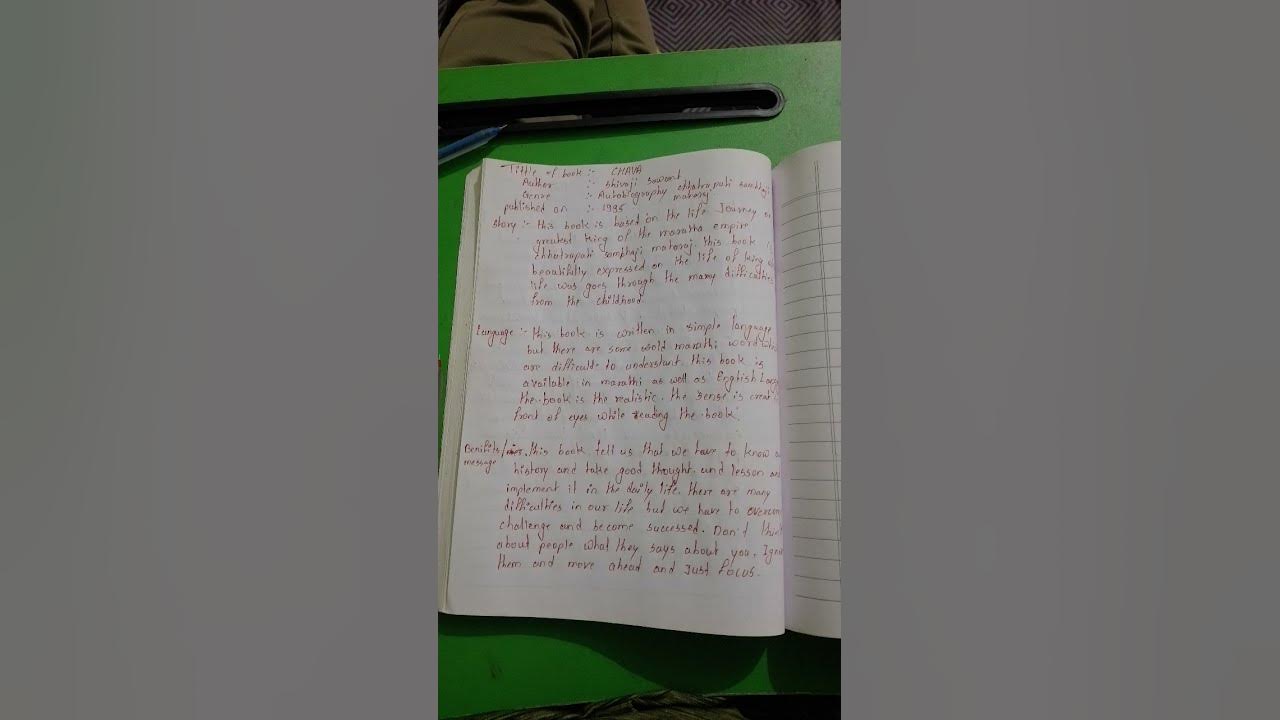 Tittle of book :- CHAVA
Author :- Shivaji Sawant
Genre :- Autobiography chhatrapati sambhaji maharaj
published on :- 1995
Story :- this book is based on the life Journey
greatest king of the maratha empire
chhatrapati sambhaji maharaj. this book is
beautifully expressed on the life of king
life was goes through the many difficulties
from the childhood
Language :- This book is written in simple language
but there are some marathi word
are difficult to understant. this book is
available in marathi as well as English
the book is the realistic. the sense is
front of eyes while reading the book.
Benifits/
message this book tell us that we have to know
history and take good thought and lesson
implement it in the daily life. there are many
difficulties in our life but we have to
challenge and become successed. Don't
about people what they says about you.
them and move ahead and Just FOCUS.